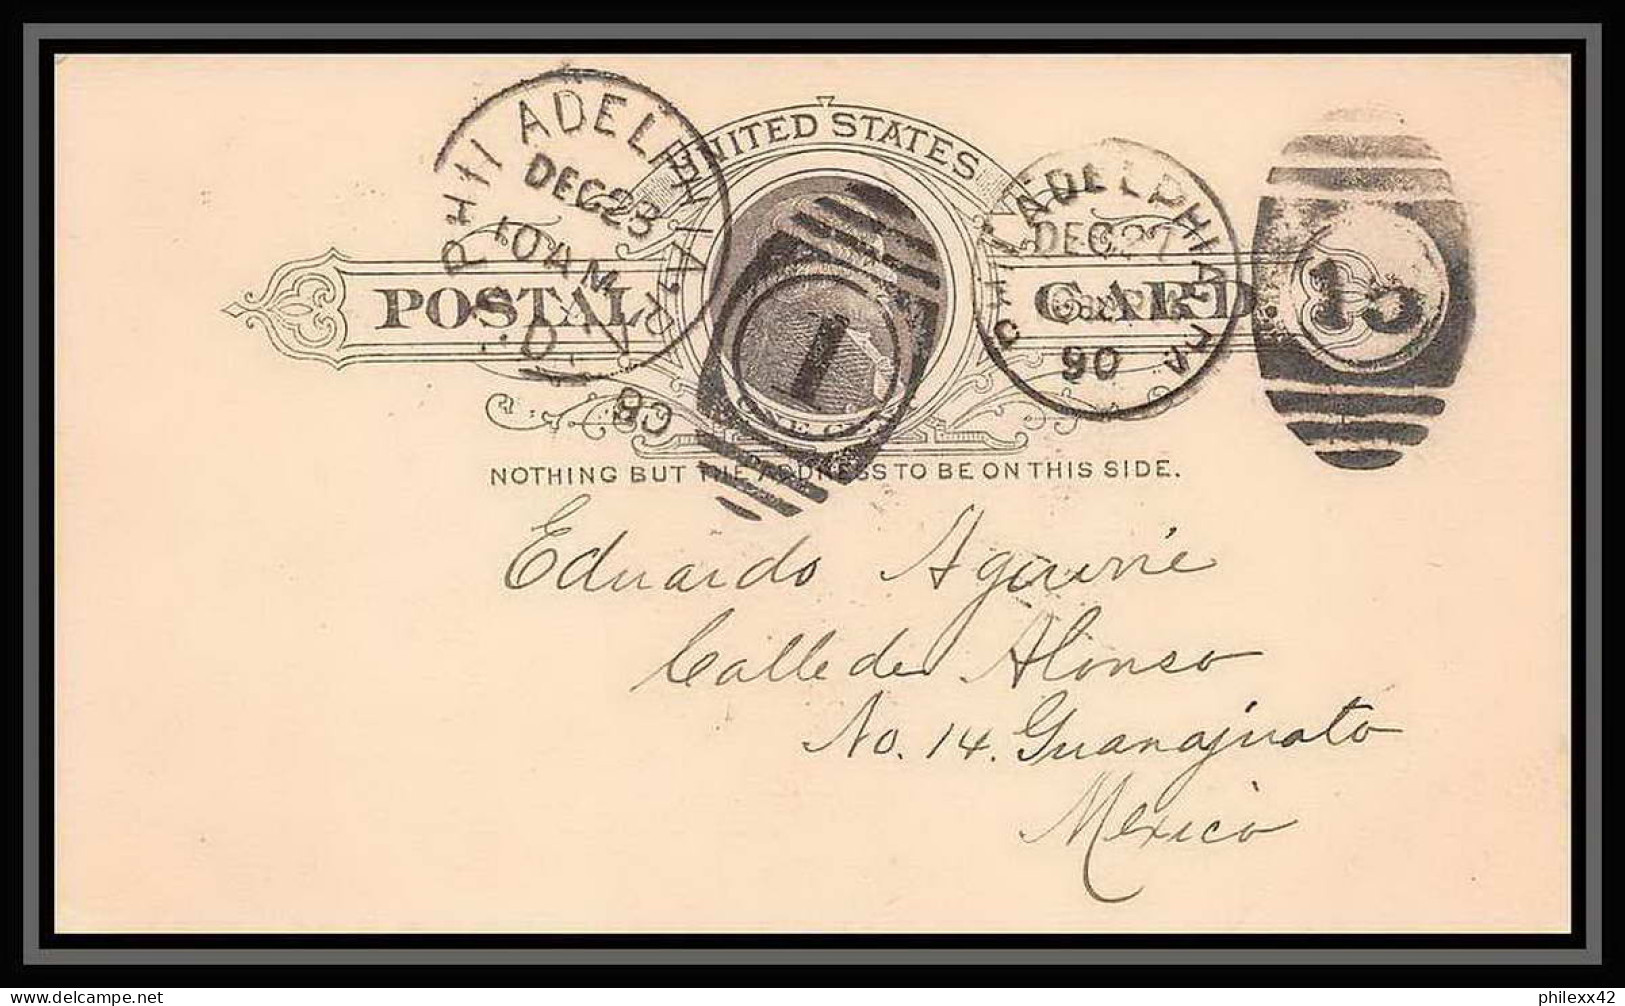 UNITED STATES
PHILADELPHIA, PA.
DEC 23
10 AM
REC'D.
PHILADELPHIA, PA
DEC 27
90
15
POSTAL CARD.
1
ONE CENT
NOTHING BUT THE ADDRESS TO BE ON THIS SIDE.
Eduardo Aguirre
Calle de Alonso
No. 14. Guanajuato
Mexico
philexx42